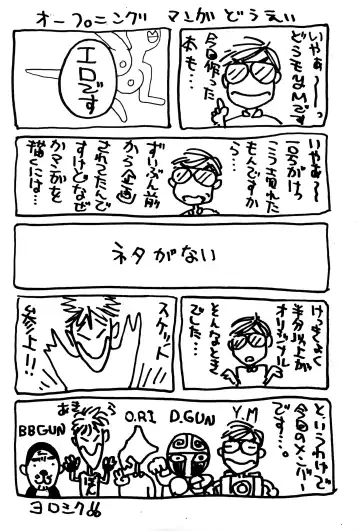 オープニング マンガ どうえい
いやぁ〜〜っ
どうもY.Mです
今回作った
本も…
エロです
いやぁ〜
1号がけっ
こう売れた
もんですか
ら…
ずいぶん前
から企画
されてたんで
すけどなぜ
かマンガを
描くには…
ネタがない
けっきょく
半分以上が
オリジナル
そんなとき
でした…
スケット
参上!!
というわけで
今回のメンバー
です…。
Y.M
D.GUN
O.RI
あきら
BBGUN
ヨロシク